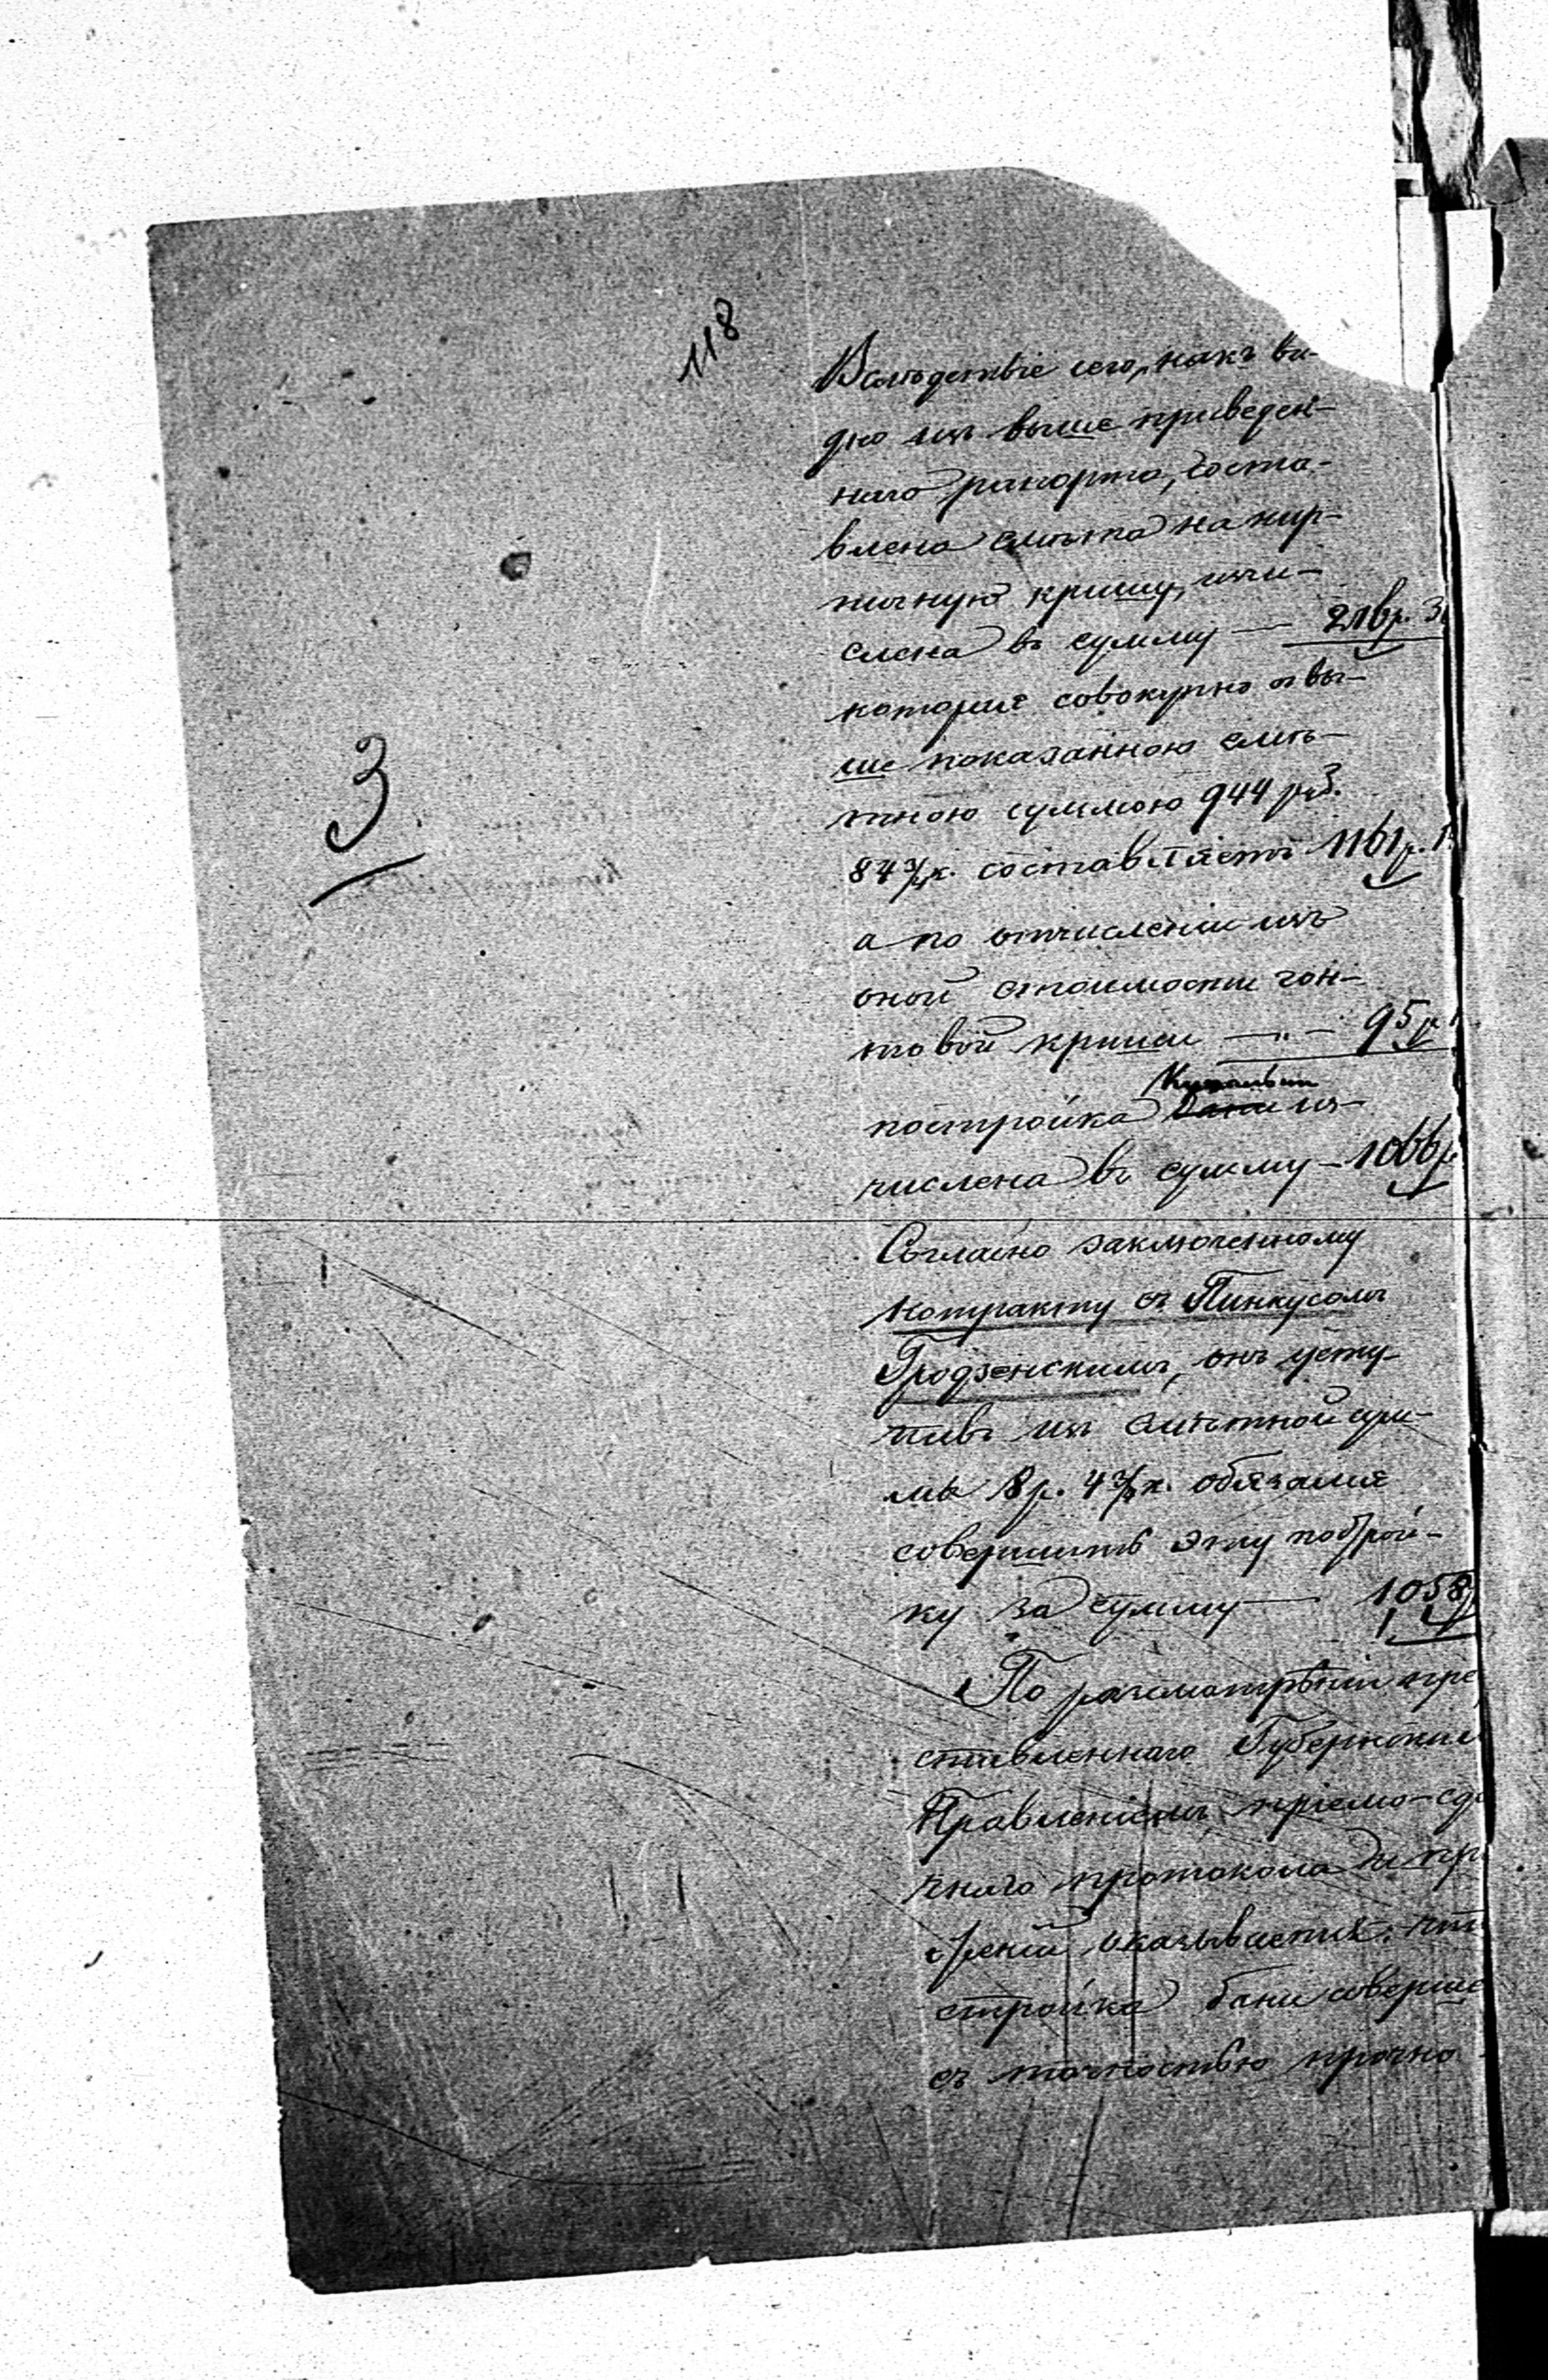 118
Вслѣдствіе сего, какъ ви-
дно изъ выше приведен-
наго рапорта, соста-
влена смѣта на кир-
пичную крышу, исчи-
слена въ сумму — 216 р. 3
которая совокупно съ вы-
ше показанною смѣ-
тною суммою 944 руб.
84 3/4 к. составляетъ 1161 р. 1
а по отчисленіи изъ
оной стоимости гон-
товой крыши — " — 95 р.
постройка бани ис-
числена въ сумму — 1066 р.
Согласно заключенному
контракту съ Пинкусомъ
Гродзенскимъ, онъ усту-
пивъ изъ смѣтной сум-
мы 8 р. 4 3/4 к. обязался
совершить эту построй-
ку за сумму — 1058 р
3
По разсмотрѣніи пре
ставленнаго Губернским
Правленіемъ пріемо-сда
чнаго протокола
оказывается, что
стройка бани соверше
съ точностью прочно